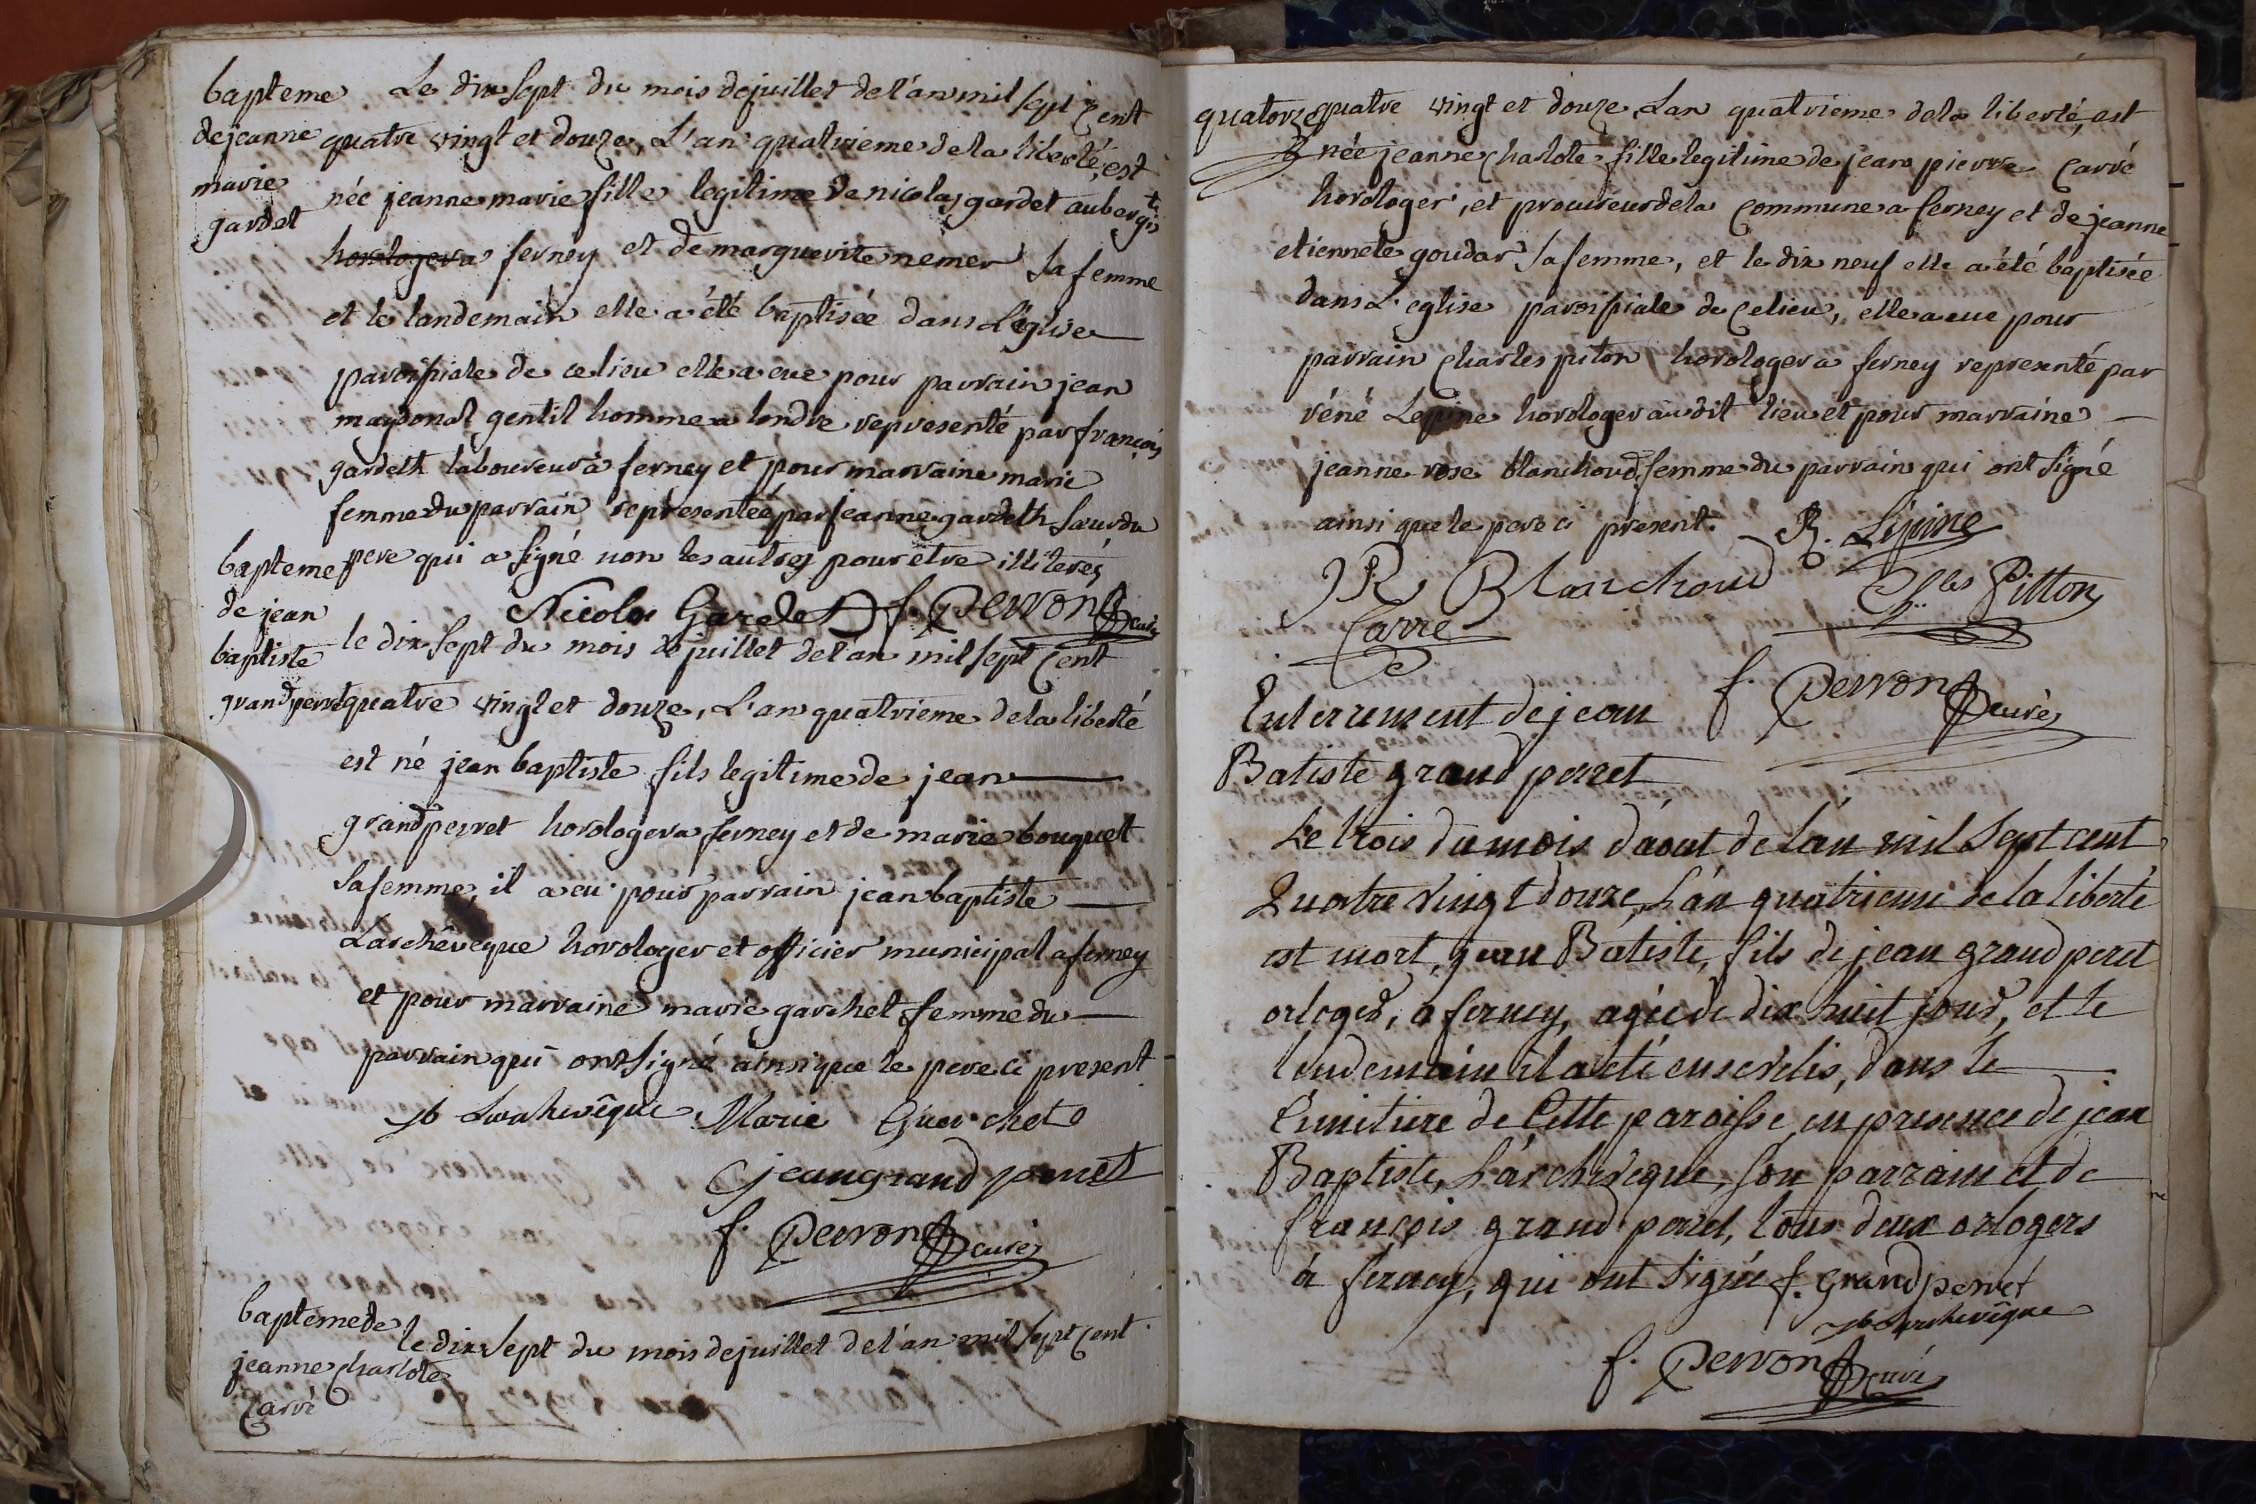 bapteme
de jeanne
marie
gardet
Le dix sept du mois de juillet de l'an mil sept cent
quatre vingt et douze, L'an quatrieme de la liberté, est
née jeanne marie fille legitime de nicolas gardet aubergis
te
horologer a ferney et de marguerite nemer sa femme
et le landemain elle a été baptisée dans L'église
paroissiale de ce lieu elle a eue pour parrain jean
maydonal gentil homme a londre representé par françois
gardelt laboureur à ferney et pour marraine marie
femme du parrain representeé par jeanne gardelt saur du
pere qui a signé non les autres pour etre illiterés
Nicolas Gardet f. Perron curé
bapteme
de jean
baptiste
grandperret
le dix sept du mois de juillet de l'an mil sept cent
quatre vingt et douze, L'an quatrieme de la liberté
est né jean baptiste fils legitime de jean
grandperret horologer a ferney et de marie bouquet
sa femme, il a eu pour parrain jean baptiste
Larchêveque horologer et officier municipal a ferney
et pour marraine marie garchet femme du
parrain qui ont signé ainsi que le pere ci present
jb Larchevêque Marie Guerchet
jean grand perret
f. Perron curé
bapteme de
jeanne charlote
Carré
le dix sept du mois de juillet de l'an mil sept cent
quatorze quatre vingt et douze L'an quatrieme de la liberté, est
née jeanne charlote fille legitime de jean pierre Carré
horologer, et procureur de la commune a ferney et de jeanne
etiennete goudar sa femme, et le dix neuf elle a été baptisée
dans L'eglise paroissiale de ce lieu, elle a eue pour
parrain Charles piton horologer a ferney representé par
réné Lepine horologer audit lieu et pour marraine
jeanne rose blanchoud femme du parrain qui ont signé
ainsi que le pere ci present. R. Lépine
J R Blanchoud Chles Pitton
Carré
f. Perron curé
Enterrement de jean
Batiste grand perret
Le trois du mois d'aout de l'an mil Sept cent
Quatre vingt douze, L'an quatrieme de la liberté
est mort, jean Batiste, fils de jean grand peret
orloger, a ferney, agée de dix huit jour, et le
lendemain il a été ensevelis, dans le
Cimetiere de Cette paroisse en presence de jean
Baptiste, L'archeveque, son parrain et de
françois grand perret, tous deux orlogers
à ferney, qui ont signée f. Grandperret
jb Larchevêque
f. Perron curé